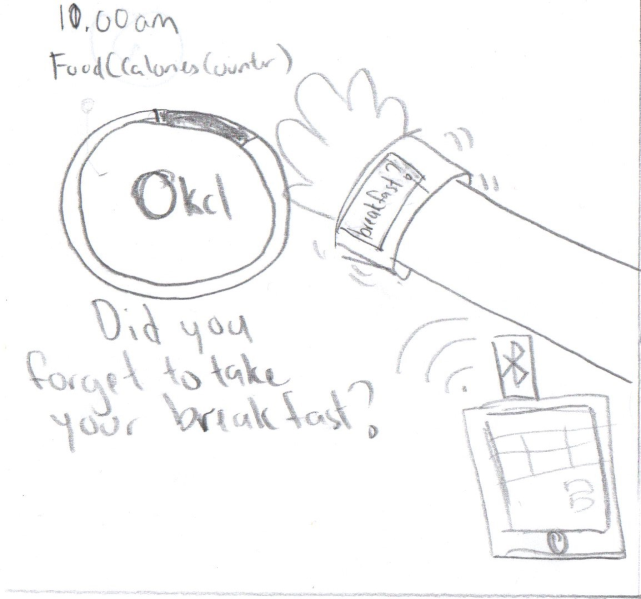 10.00am
Food(Calories Counter)
0kcl
breakfast?!
Did you
forget to take
your breakfast?